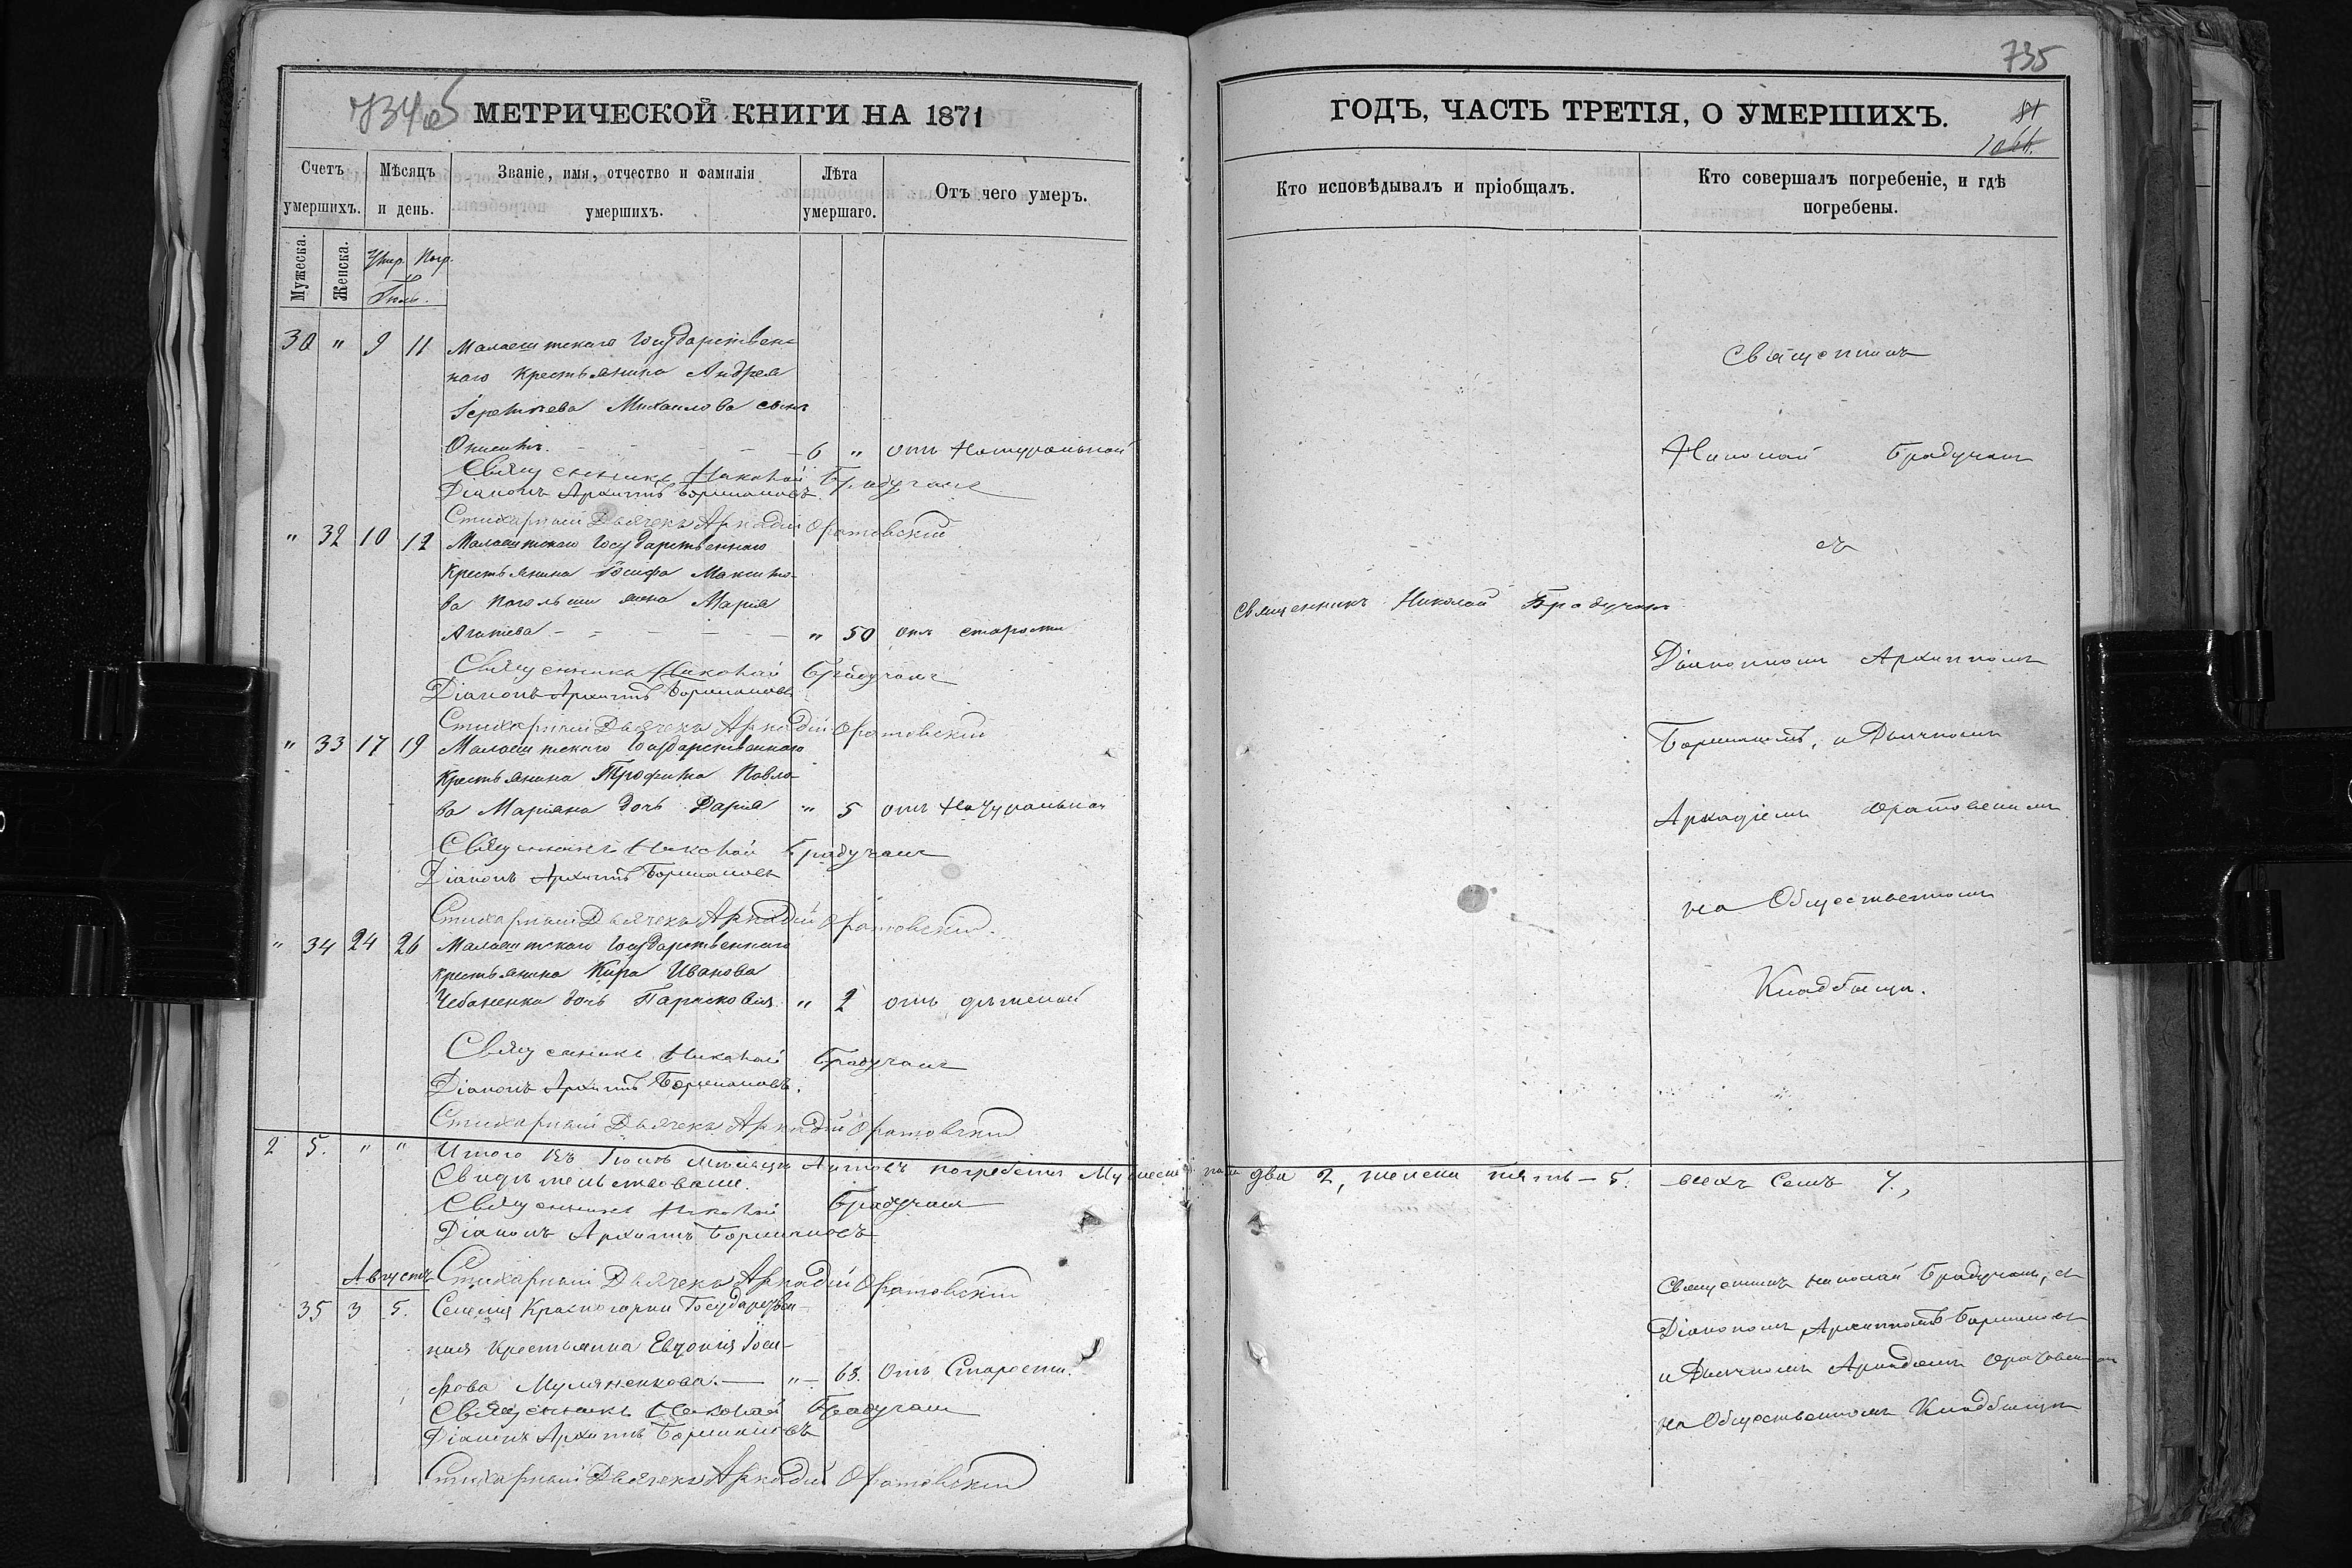 734об
МЕТРИЧЕСКОЙ КНИГИ НА 1871
Счетъ умершихъ.
Мѣсяцъ и день.
Званіе, имя, отчество и фамилія умершихъ.
Лѣта умершаго.
Отъ чего умеръ.
Мужеска.
Женска.
Умер. Погр.
Іюль.
30 " 9 11 Малаештскаго Государствен-
наго крестьянина Андрея
Михаилова сынъ
6 " отъ Натуральной
Священникъ Николай Брадучанъ
Діаконъ Архиппъ
Стихарный Дьячекъ Аркадій Оратовскій
" 32 10 12 Малаештскаго Государственнаго
крестьянина Іосифа Макси-
ва жена Мария
" 50 отъ старости
Священникъ Николай Брадучанъ
Діаконъ Архиппъ
Стихарный Дьячекъ Аркадій Оратовскій
" 33 17 19 Малаештскаго Государственнаго
крестьянина Трофима Павло-
ва Мариана дочь Дария " 5 отъ Натуральной
Священникъ Николай Брадучанъ
Діаконъ Архиппъ
Стихарный Дьячекъ Аркадій Оратовскій
" 34 24 26 Малаештскаго Государственнаго
крестьянина Кира Иванова
Чебаненка дочь Парасковия " 2 отъ
Священникъ Николай Брадучанъ
Діаконъ Архиппъ
Стихарный Дьячекъ Аркадій Оратовскій
2 5. " " Итого въ Іюлѣ мѣсяцѣ погребена Мужеска пола два 2, женска пять – 5. всехъ Семъ 7.,
Священникъ Николай Брадучанъ
Діаконъ Архиппъ
Августъ
Стихарный Дьячекъ Аркадій Оратовскій
35 3 5. Селенія Красногорки Государствен-
ная Крестьянка Евдокия Іоси-
фова Муляненкова. — " – 63. Отъ Старости.
Священникъ Николай Брадучанъ
Діаконъ Архиппъ
Стихарный Дьячекъ Аркадій Оратовскій
735
ГОДЪ, ЧАСТЬ ТРЕТІЯ, О УМЕРШИХЪ.
81
1066.
Кто исповѣдывалъ и пріобщалъ.
Кто совершалъ погребеніе, и гдѣ погребены.
Священникъ
Николай Брадучанъ
съ
Священникъ Николай Брадучанъ
Діакономъ Архиппомъ
и Дьячкомъ
Аркадіемъ Оратовскимъ
на Общественномъ
Кладбищи.
Священникъ Николай Брадучанъ, съ
Діакономъ Архиппомъ
и Дьячкомъ Аркадіемъ Оратовскимъ
на Общественномъ Кладбищи